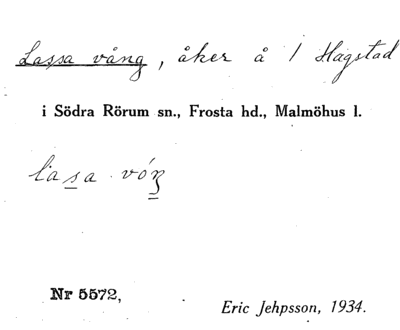 Lassa vång, åker å 1 Hagstad
i Södra Rörum sn., Frosta hd., Malmöhus l.
lasa
Nr 5572,
Eric Jehpsson, 1934.